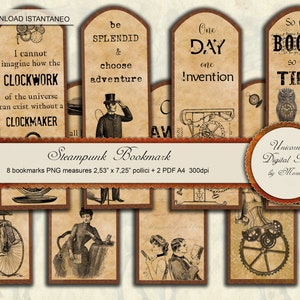 DOWNLOAD ISTANTANEO
I cannot
imagine how the
CLOCKWORK
of the universe
can exist without a
CLOCKMAKER
be
SPLENDID
&
choose
adventure
One
DAY
one
!nvention
So
BOO
so
TI
Steampunk Bookmark
8 bookmarks PNG measures 2,53" x 7,25" pollici + 2 PDF A4 300dpi
Unicorn
Digital
by